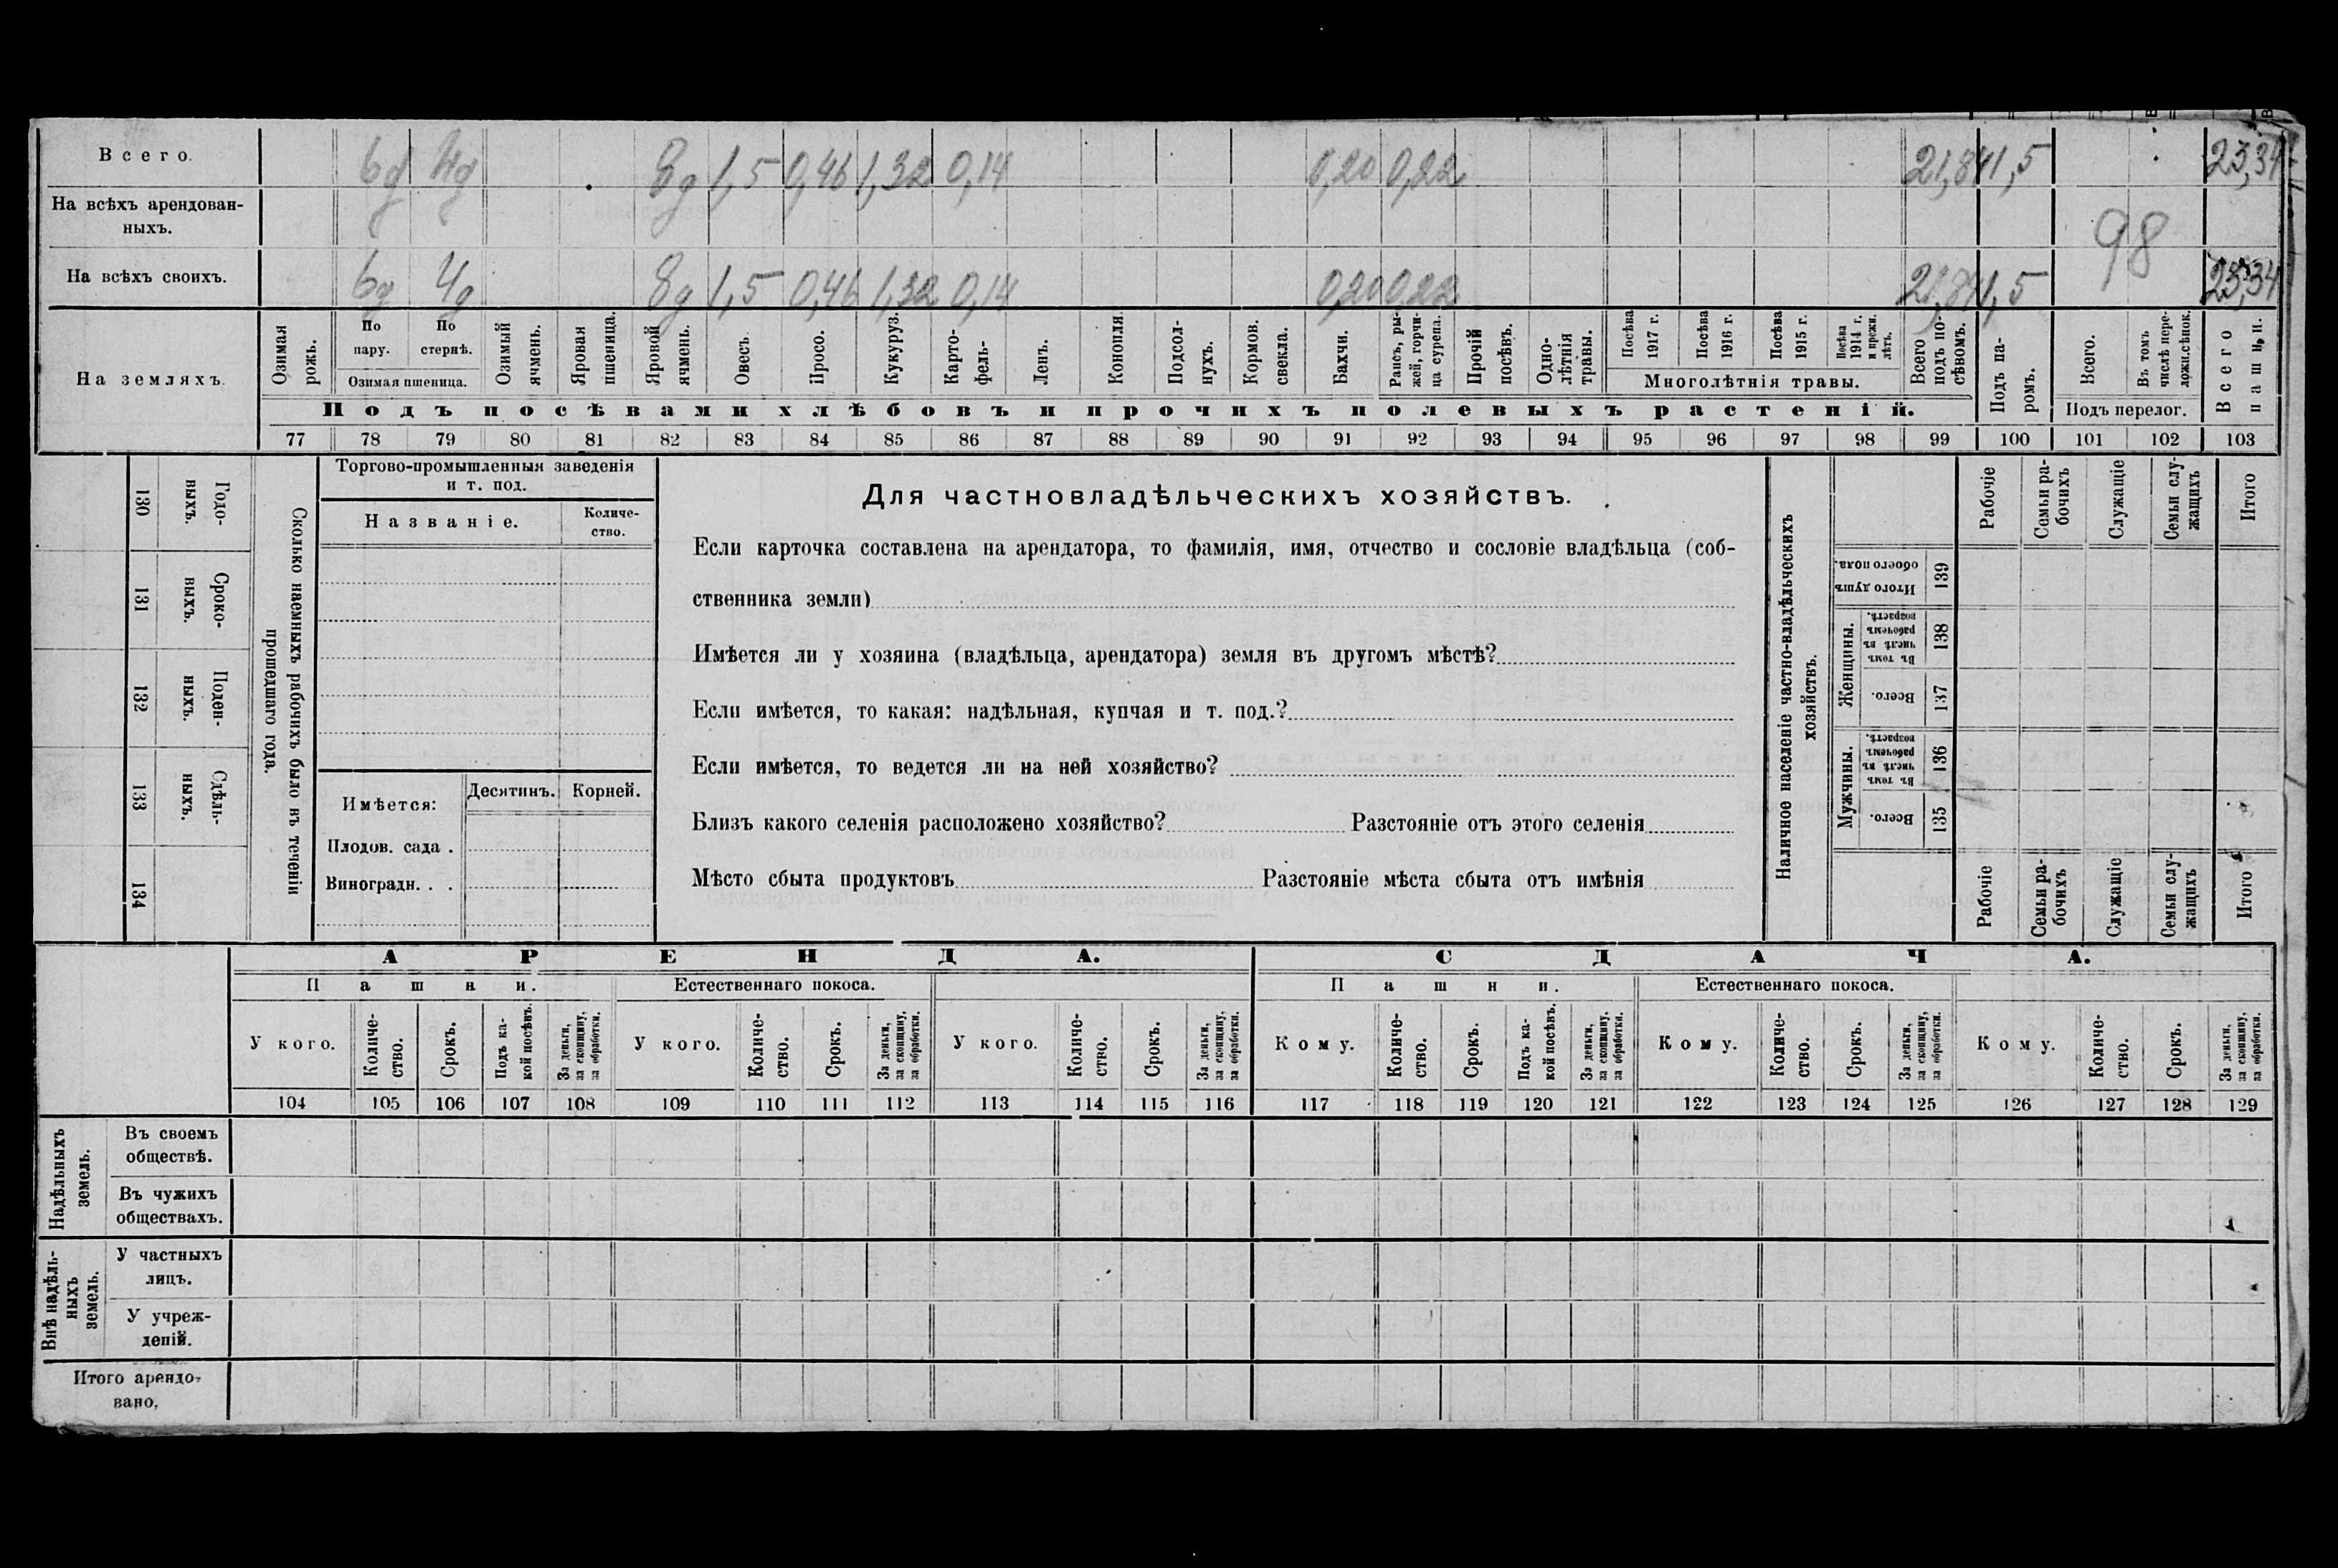 Всего. 6д 4д 8д 1,5 0,46 1,32 0,14 0,20 0,22 21,84 1,5 23,34
На всѣхъ арендован-
ныхъ.
98
На всѣхъ своихъ. 6д 4д 8д 1,5 0,46 1,32 0,14 0,20 0,22 21,84 1,5 23,34
На земляхъ.
Озимая рожь.
По пару.
По стернѣ.
Озимая пшеница.
Озимый ячмень.
Яровая пшеница.
Яровой ячмень.
Овесъ.
Просо.
Кукуруз.
Карто-
фель-
Ленъ.
Конопля
Подсол-
нухъ.
Кормов. свекла.
Бахчи.
Рапсъ, ры-
жей, горчи-
ца сурепа.
Прочій посѣвъ.
Одно-
лѣтнія травы.
Посѣва 1917 г.
Посѣва 1916 г.
Посѣва 1915 г.
Посѣва 1914 г. и прежн. лѣтъ.
Многолѣтнія травы.
Всего подъ по-
сѣвомъ.
Подъ посѣвами хлѣбовъ и прочихъ полевыхъ растеній.
Подъ па-
ромъ.
Всего.
Въ томъ числѣ пере-
ложн.сѣнок.
Подъ перелог.
Всего пашни.
77 78 79 80 81 82 83 84 85 86 87 88 89 90 91 92 93 94 95 96 97 98 99 100 101 102 103
130 Годо-
выхъ.
131 Сроко-
выхъ.
132 Поден-
ныхъ.
133 Сдѣль-
ныхъ.
134
Сколько наемныхъ рабочихъ было въ теченіи
прошедшаго года.
Торгово-промышленныя заведенія
и т. под.
Названіе.
Количе-
ство.
Имѣется:
Десятинъ. Корней.
Плодов. сада .
Виноградн. . .
Для частновладѣльческихъ хозяйствъ.
Если карточка составлена на арендатора, то фамилія, имя, отчество и сословіе владѣльца (соб-
ственника земли)
Имѣется ли у хозяина (владѣльца, арендатора) земля въ другомъ мѣстѣ?
Если имѣется, то какая: надѣльная, купчая и т. под.?
Если имѣется, то ведется ли на ней хозяйство?
Близъ какого селенія расположено хозяйство? Разстояніе отъ этого селенія
Мѣсто сбыта продуктовъ Разстояніе мѣста сбыта отъ имѣнія
Наличное населеніе частно-владѣльческихъ
хозяйствъ.
Рабочіе
Семьи ра-
бочихъ
Служащіе
Семьи слу-
жащихъ
Итого
Итого душъ обоего пола.
139
Женщины.
Въ томъ числѣ въ рабочемъ возрастѣ.
138
Всего.
137
Мужчины.
Въ томъ числѣ въ рабочемъ возрастѣ.
136
Всего.
135
Рабочіе
Семьи ра-
бочихъ
Служащіе
Семьи слу-
жащихъ
Итого
АРЕНДА. СДАЧА.
Пашни. Естественнаго покоса. Пашни. Естественнаго покоса.
У кого.
Количе-
ство.
Срокъ.
Подъ ка-
кой посѣвъ.
За деньги, за скопщину, за обработки.
У кого.
Количе-
ство.
Срокъ.
За деньги, за скопщину, за обработки.
У кого.
Количе-
ство.
Срокъ.
За деньги, за скопщину, за обработки.
Кому.
Количе-
ство.
Срокъ.
Подъ ка-
кой посѣвъ.
За деньги, за скопщину, за обработки.
Кому.
Количе-
ство.
Срокъ.
За деньги, за скопщину, за обработки.
Кому.
Количе-
ство.
Срокъ.
За деньги, за скопщину, за обработки.
104 105 106 107 108 109 110 111 112 113 114 115 116 117 118 119 120 121 122 123 124 125 126 127 128 129
Надѣльныхъ земель.
Въ своемъ
обществѣ.
Въ чужихъ
обществахъ.
Внѣ надѣль-
ныхъ земель.
У частныхъ
лицъ.
У учреж-
деній.
Итого арендо-
вано.